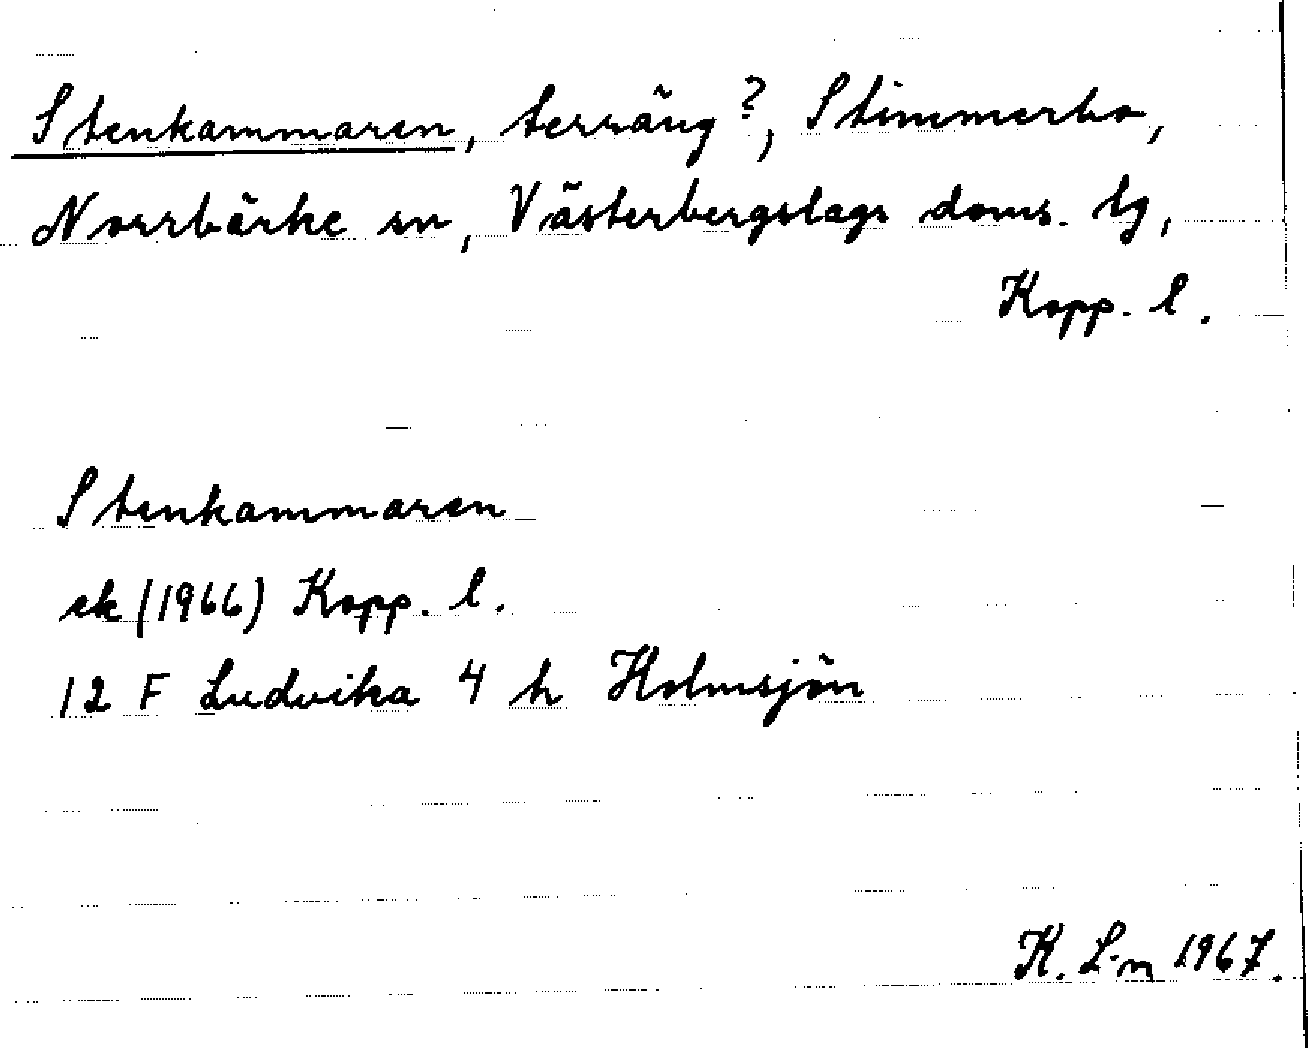 Stenkammaren, terräng?, Stimmerbo,
Norrbärke sn, Västerbergslags doms. tg,
Kopp. l.
Stenkammaren
ek (1966) Kopp. l.
12 F Ludvika 4 h Holmsjön
K. L-m 1967.